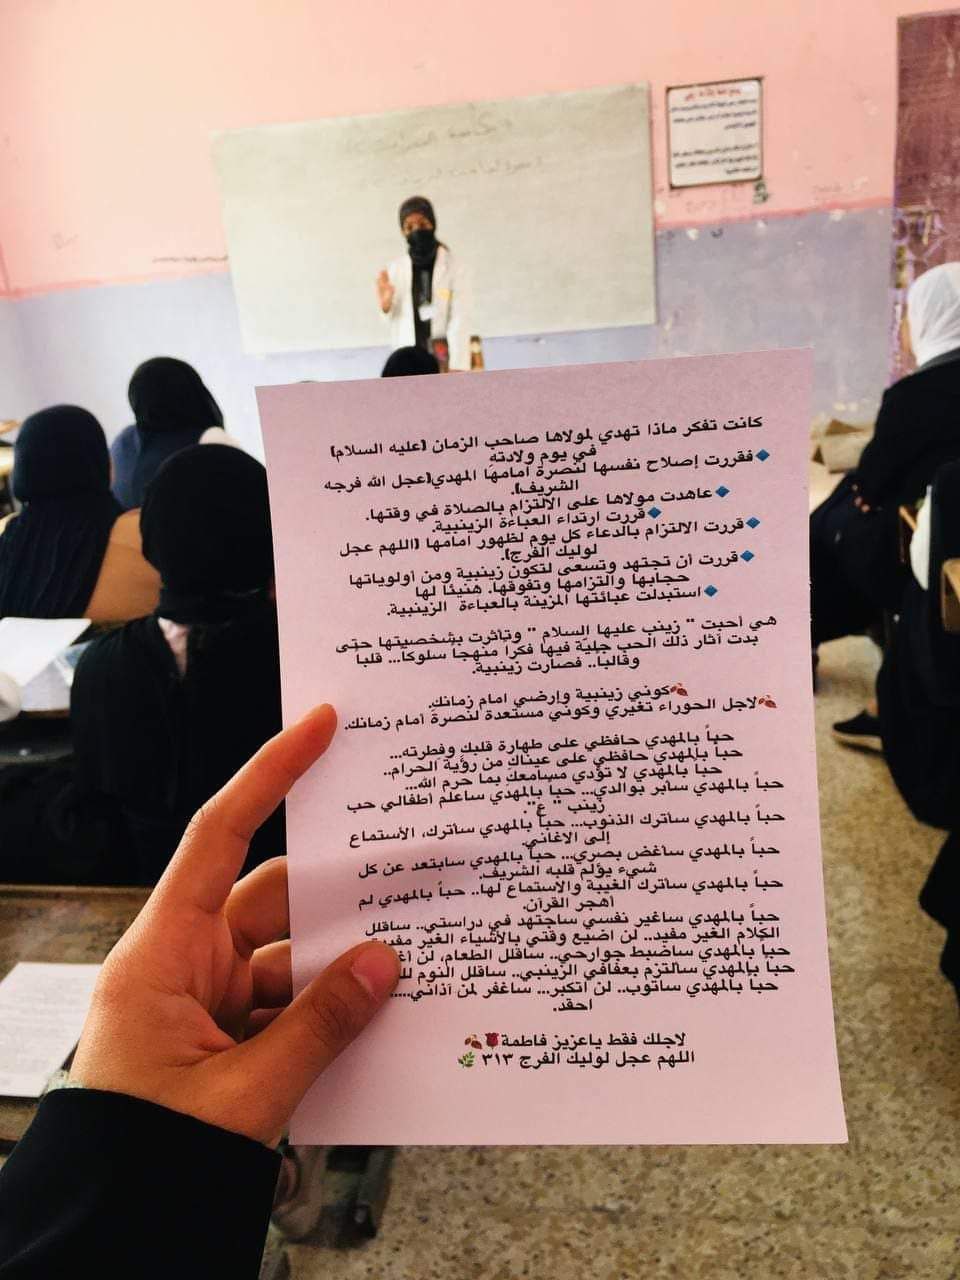 كانت تفكر ماذا تهدي لمولاها صاحب الزمان (عليه السلام)
في يوم ولادته
🔹فقررت إصلاح نفسها لنصرة أمامها المهدي(عجل الله فرجه
الشريف).
🔹عاهدت مولاها على الالتزام بالصلاة في وقتها.
🔹قررت ارتداء العباءة الزينبية.
🔹قررت الالتزام بالدعاء كل يوم لظهور امامها (اللهم عجل
لوليك الفرج).
🔹قررت أن تجتهد وتسعى لتكون زينبية ومن أولوياتها
حجابها والتزامها وتفوقها. هنيئا لها
🔹استبدلت عبائتها المزينة بالعباءة الزينبية.
هي أحبت " زينب عليها السلام " وتأثرت بشخصيتها حتى
بدت آثار ذلك الحب جلية فيها فكراً منهجا سلوكا... قلباً
وقالبا.. فصارت زينبية.
🍂كوني زينبية وإرضي امام زمانك.
🍂لاجل الحوراء تغيري وكوني مستعدة لنصرة أمام زمانك.
حباً بالمهدي حافظي على طهارة قلبك وفطرته...
حباً بالمهدي حافظي على عيناك من رؤية الحرام..
حباً بالمهدي لا تؤذي مسامعك بما حرم الله...
حباً بالمهدي سأبر بوالدي... حباً بالمهدي ساعلم أطفالي حب
زينب " ع".
حباً بالمهدي سأترك الذنوب... حباً بالمهدي سأترك، الأستماع
إلى الاغاني.
حباً بالمهدي سأغض بصري... حباً بالمهدي سابتعد عن كل
شيء يؤلم قلبه الشريف.
حباً بالمهدي سأترك الغيبة والاستماع لها.. حباً بالمهدي لم
أهجر القرآن.
حباً بالمهدي ساغير نفسي ساجتهد في دراستي.. ساقلل
الكلام الغير مفيد.. لن اضيع وقتي بالأشياء الغير مفيدة
حباً بالمهدي ساضبط جوارحي.. ساقلل الطعام، لن
حباً بالمهدي سألتزم بعفافي الزينبي.. ساقلل النوم
حباً بالمهدي ساتوب.. لن اتكبر... ساغفر لمن آذاني.....
احقد.
لاجلك فقط ياعزيز فاطمة🌹🍂
اللهم عجل لوليك الفرج ٣١٣ 🌿